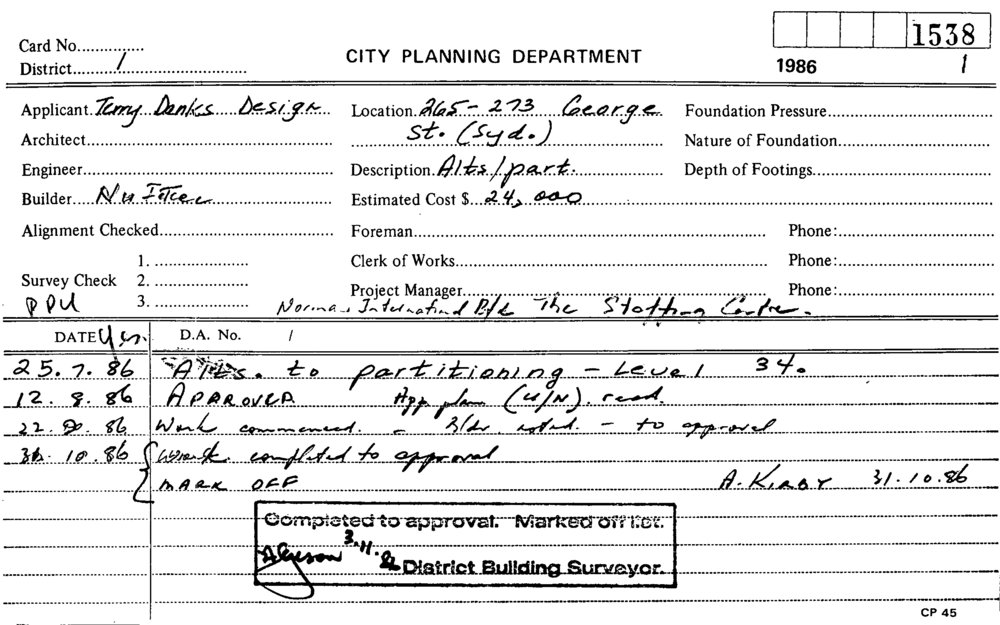 1538
Card No...............
District.......1.......
CITY PLANNING DEPARTMENT
1986 1
Applicant Terry Danks Design Location 265-273 George Foundation Pressure
Architect St. (Syd.) Nature of Foundation
Engineer Description Alts/part. Depth of Footings
Builder Estimated Cost $ 24,000
Alignment Checked Foreman Phone:
1. Clerk of Works Phone:
Survey Check 2.
Project Manager Phone:
PPU 3. Norman International P/L The Staffing Centre.
DATE D.A. No. /
25.7.86 Alts. to partitioning - Level 34.
12.8.86 APPROVED App. plan (U/N). recd.
22. 86 Work commenced. - noted. - to approval
31.10.86 Work completed to approval
MARK OFF A. KIRBY 31.10.86
Completed to approval. Marked off list.
3.11.86
District Building Surveyor.
CP 45